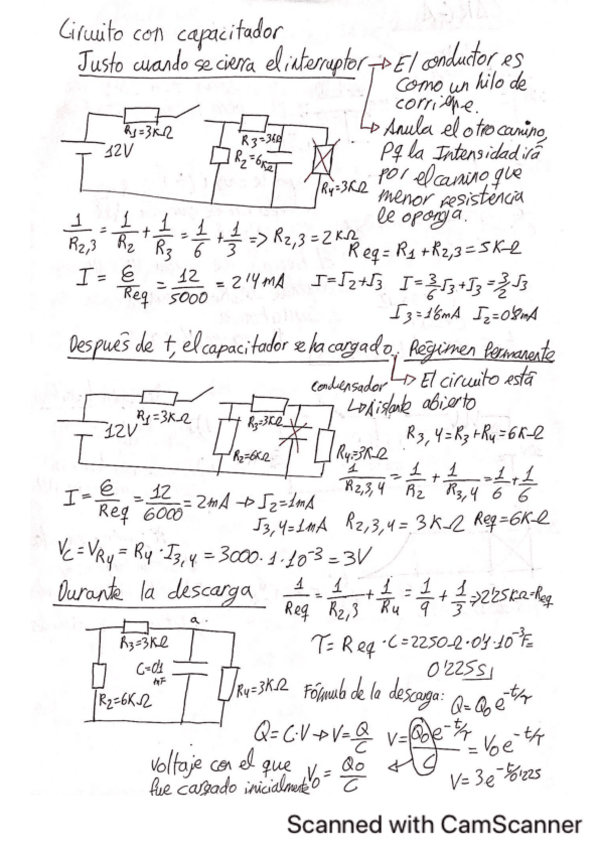 Circuito con capacitador
Justo cuando se cierra el interruptor → El conductor es
como un hilo de
corriente.
↳ Anula el otro camino,
Pq la Intensidad irá
por el camino que
menor resistencia
le oponga.
R1=3KΩ
12V
R3=3KΩ
R2=6KΩ
R4=3KΩ
1/R2,3 = 1/R2 + 1/R3 = 1/6 + 1/3 => R2,3=2KΩ
Req=R1+R2,3=5KΩ
I = ε/Req = 12/5000 = 2'4mA I=I2+I3 I=3/6 I3+I3=3/2 I3
I3=1'6mA I2=0'8mA
Después de t, el capacitador se ha cargado. Régimen Permanente
condensador ↳ El circuito está
↳ Aislante abierto
R1=3KΩ
12V
R3=3KΩ
R2=6KΩ
R4=3KΩ
R3,4=R3+R4=6KΩ
1/R2,3,4 = 1/R2 + 1/R3,4 = 1/6 + 1/6
I = ε/Req = 12/6000 = 2mA → I2=1mA
I3,4=1mA R2,3,4 = 3KΩ Req=6KΩ
Vc=VR4 = R4·I3,4 = 3000·1·10^-3 = 3V
Durante la descarga
1/Req = 1/R2,3 + 1/R4 = 1/9 + 1/3 → 2'25KΩ=Req
a.
R3=3KΩ
C=0'1
mF
R2=6KΩ
R4=3KΩ
τ=Req·C=2250Ω·0'1·10^-3F=
0'225s
Fórmula de la descarga: Q=Q0 e^-t/τ
Q=C·V → V=Q/C V=Q0e^-t/τ/C = V0e^-t/τ
Voltaje con el que
fue cargado inicialmente V0 = Q0/C
V=3e^-t/0'225
Scanned with CamScanner